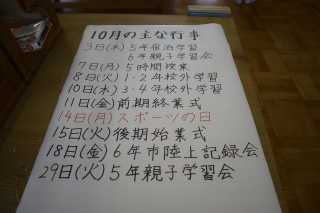 10月の主な行事
3日(木)5年宿泊学習
6年親子学習会
7日(月)5時間授業
8日(火)1・2年校外学習
10日(木)3・4年校外学習
11日(金)前期終業式
14日(月)スポーツの日
15日(火)後期始業式
18日(金)6年市陸上記録会
29日(火)5年親子学習会